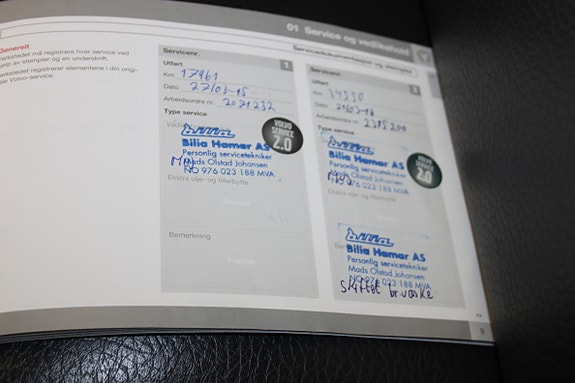 01 Service og vedlikehold
Servicedokumentasjon og stempler
Generelt
verkstedet må registrere hver service ved
hjelp av stempler og en underskrift.
verkstedet registrerer elementene i din origi-
nale Volvo-service.
Servicenr. 1
Utført
Km 17961
Dato 27/03-15
Arbeidsordre nr. 2021232
Type service
VOLVO
SERVICE
2.0
Bilia Hamar AS
Personlig servicetekniker
Mads Olstad Johansen
NO 976 023 188 MVA
Ekstra olje- og filterbytte
Stempel
Bemerkning
Stempel
Servicenr. 2
Utført
Km
Dato
Arbeidsordre nr.
Type service
VOLVO
SERVICE
2.0
Bilia Hamar AS
Personlig servicetekniker
Mads Olstad Johansen
NO 976 023 188 MVA
Ekstra olje- og filterbytte
Bilia Hamar AS
Personlig servicetekniker
Mads Olstad Johansen
NO 976 023 188 MVA